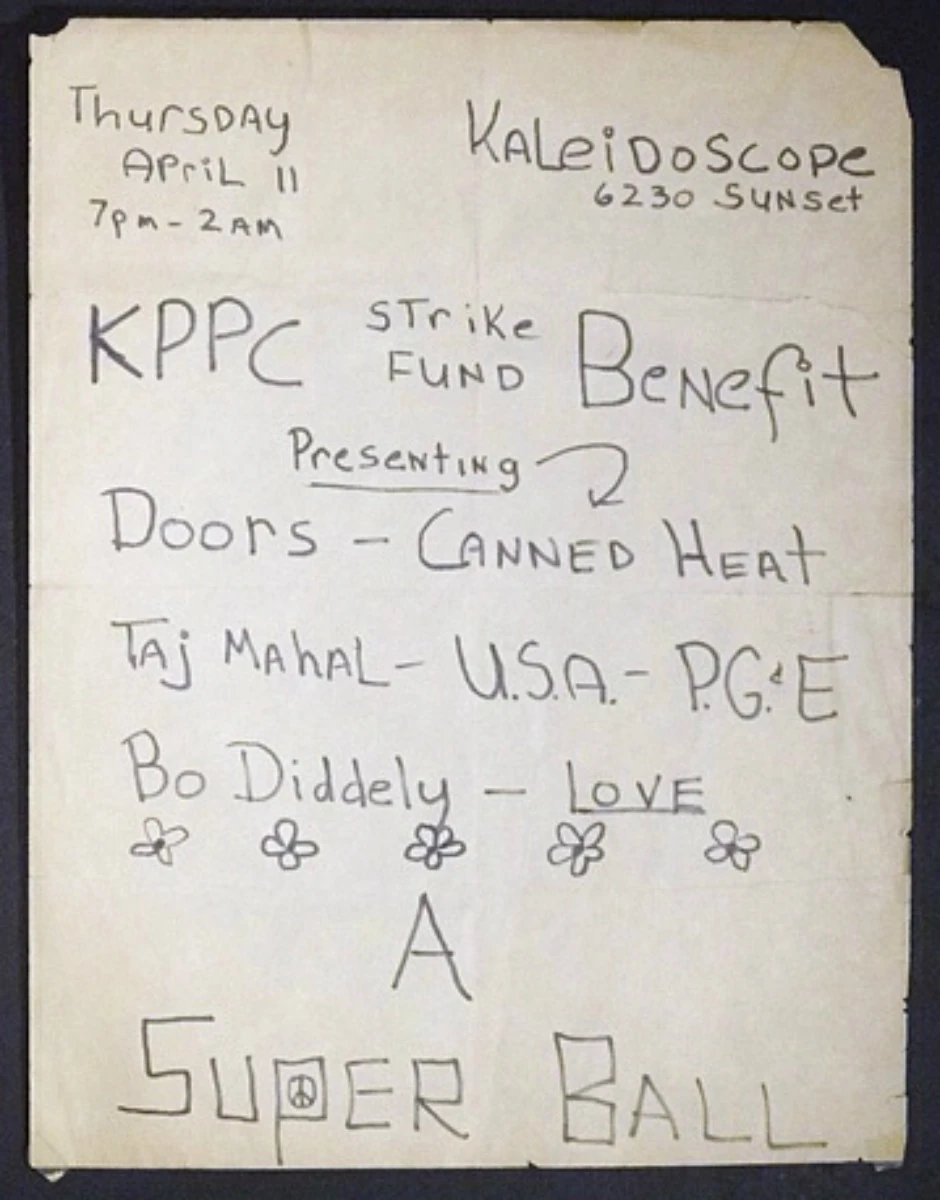 Thursday
April 11
7pm - 2AM
Kaleidoscope
6230 Sunset
KPPC Strike Fund Benefit
Presenting
Doors - Canned Heat
Taj Mahal - U.S.A. - P.G.&E
Bo Diddely - Love
A
Super Ball